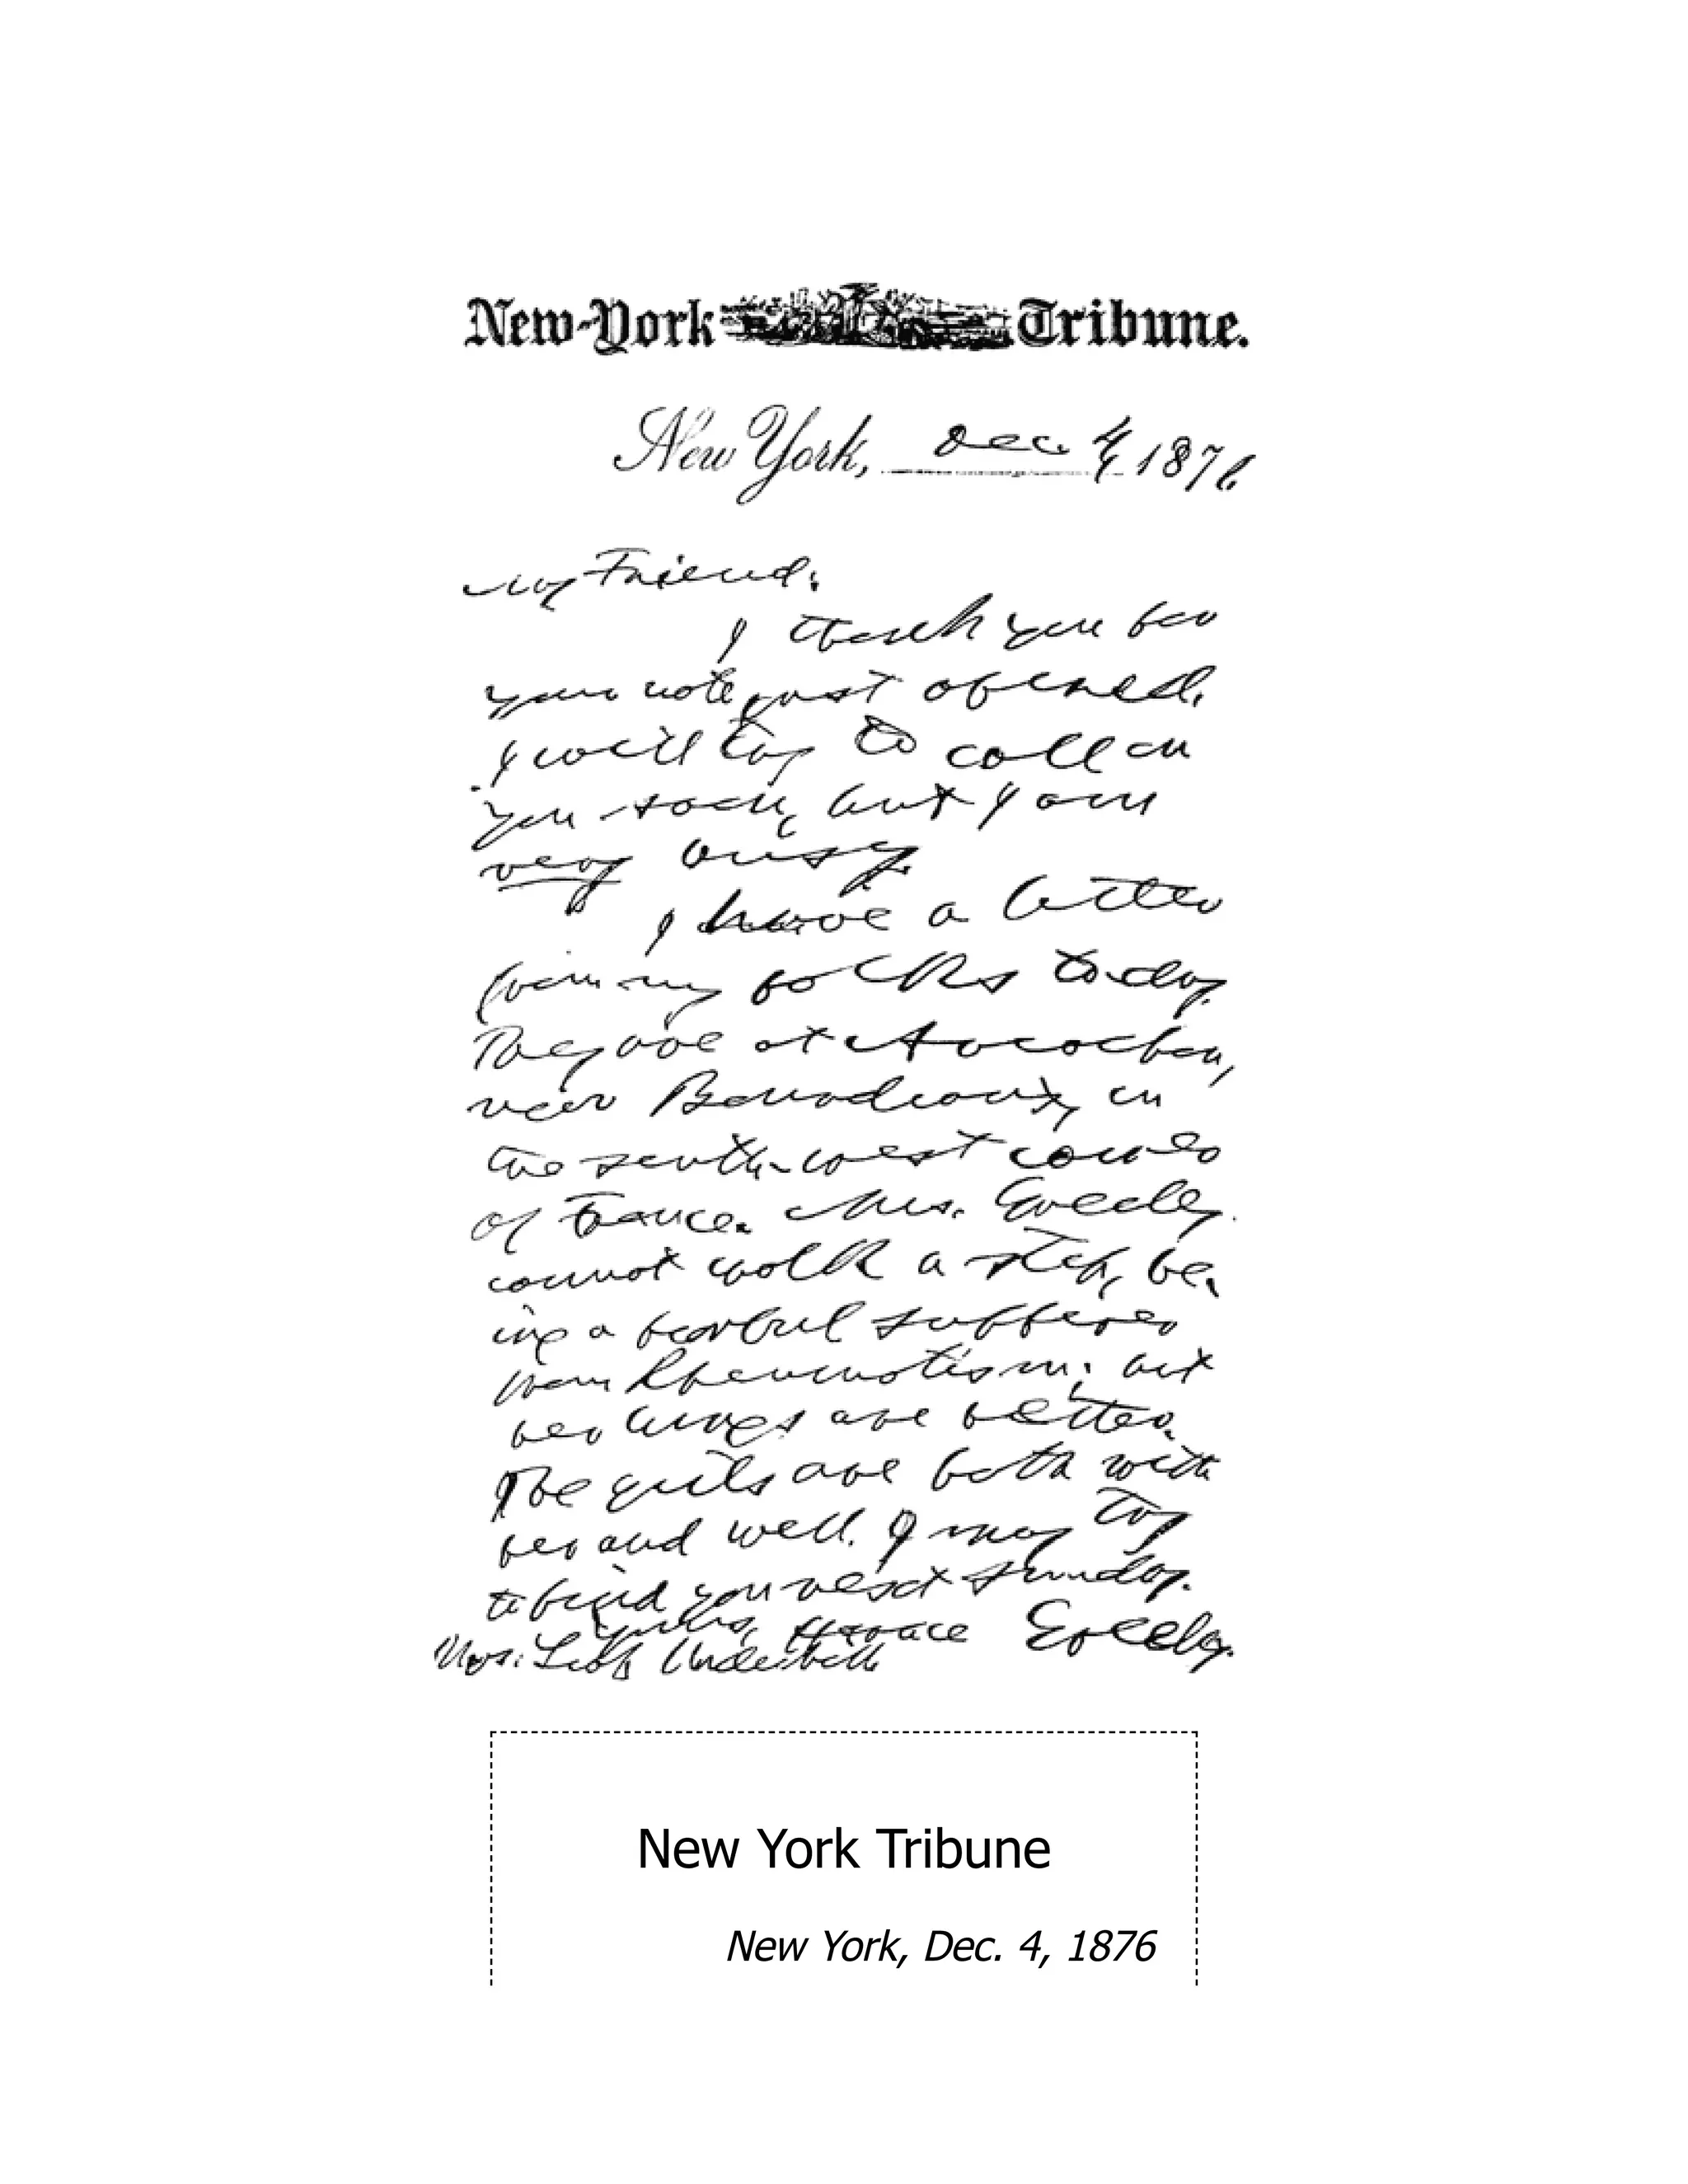 New-York Tribune.
New York, Dec. 4, 1876
My Friend:
I thank you for
your note just opened.
I will try to call on
you soon, but I am
very busy.
I have a letter
from my folks to-day.
They are at Arcachon,
near Bourdeaux, in
the south-west corner
of France. Mrs. Greeley
cannot walk a step, be-
ing a fearful sufferer
from Rheumatism; but
her lungs are better.
The girls are both with
her and well. I may try
to find you next Sunday.
Yours, Horace Greeley.
Mrs. Leah Underhill
New York Tribune
New York, Dec. 4, 1876